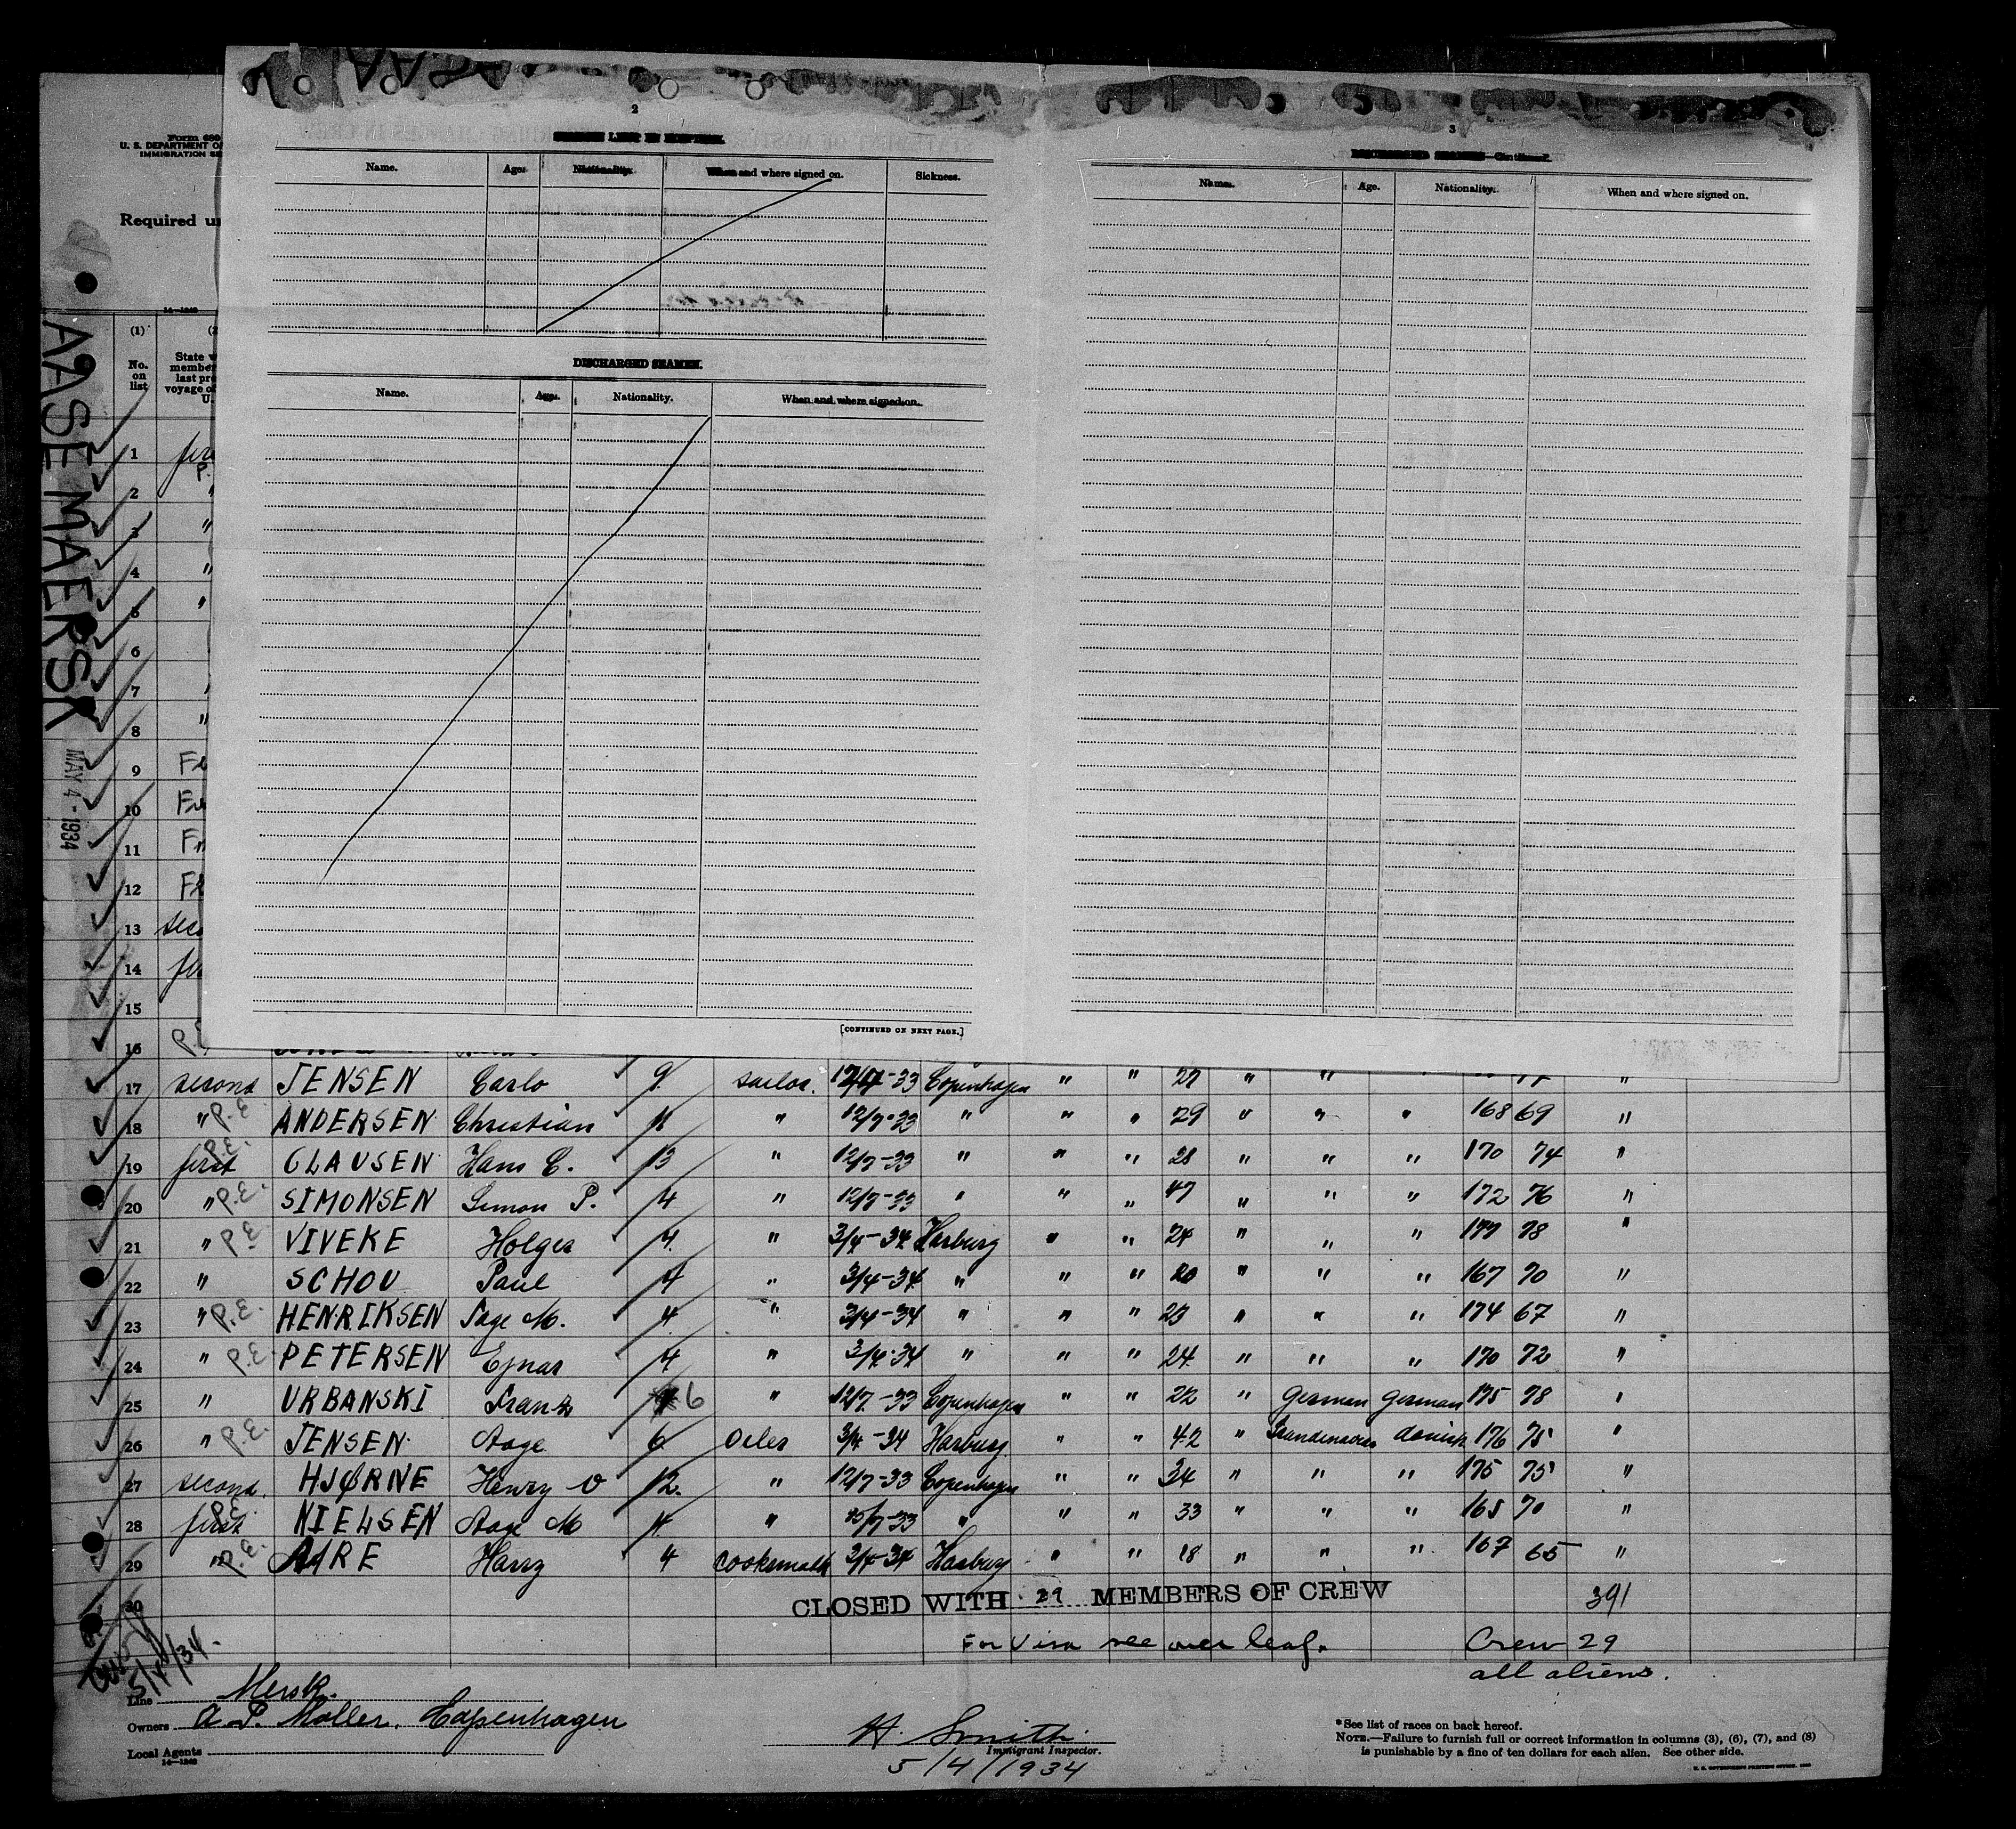 2
Name. Age. Nationality. When and where signed on. Sickness.
DISCHARGED SEAMEN.
Name. Age. Nationality. When and where signed on.
[CONTINUED ON NEXT PAGE.]
3
DISCHARGED SEAMEN—Continued.
Name. Age. Nationality. When and where signed on.
Form 680
U. S. DEPARTMENT OF
IMMIGRATION SE
Required un
14—1240
AASE MAERSK
MAY 4 - 1934
(1) (2
No. on list
State w
member
last pre
voyage of
U.
1 firs
P.
2 "
3 "
4 "
5 "
6
7
8 "
9 Fi
10 Fi
11 Fi
12 Fi
13 seco
14 firs
15
16 P.E
17 second JENSEN Carlo 9. sailor. 12/7-33 Copenhagen " " 27 " " "
18 " P.E. ANDERSEN Christian 11 " 12/7-33 " " " 29 " " " 168 69 "
19 first P.E. CLAUSEN Hans C. 13 " 12/7-33 " " " 28 " " " 170 74 "
20 " P.E. SIMONSEN Simon P. 4 " 12/7-33 " " " 47 " " " 172 76 "
21 " P.E VIVEKE Holger 4. " 3/4-34 Harburg " " 24 " " " 177 78 "
22 " SCHOU Paul 4 " 3/4-34 " " " 20 " " " 167 70 "
23 " P.E. HENRIKSEN Aage M. 4 " 3/4-34 " " " 23 " " " 174 67 "
24 " P.E. PETERSEN Ejnar 4 " 3/4-34 " " " 24 " " " 170 72 "
25 " URBANSKI Frantz 6 " 12/7-33 Copenhagen " " 22 " German German 175 78 "
26 " P.E. JENSEN Aage 6 Oiler 3/4-34 Harburg " " 42 " Scandinavian danish 176 75 "
27 second. HJØRNE Henry V 12. " 12/7-33 Copenhagen " " 34 " " " 175 75 "
28 first P.E. NIELSEN Aage M 4. " 25/7-33 " " " 33 " " " 165 70 "
29 " P.E. AIRE Harry 4 cooksmath 3/4-34 Harburg " " 18 " " " 167 65 "
30 CLOSED WITH 29 MEMBERS OF CREW 391
For Visa see over leaf. Crew 29
all aliens.
5/4/34.
Line Mersk.
Owners A. P. Moller, Copenhagen
Local Agents
14—1240
H. Smith
Immigrant Inspector.
5/4/1934
*See list of races on back hereof.
NOTE.—Failure to furnish full or correct information in columns (3), (6), (7), and (8)
is punishable by a fine of ten dollars for each alien. See other side.
U. S. GOVERNMENT PRINTING OFFICE